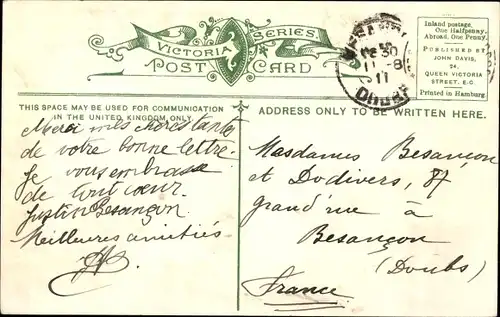 VICTORIA SERIES
POST CARD
Inland postage,
One Halfpenny.
Abroad, One Penny.
PUBLISHED BY
JOHN DAVIS,
24,
QUEEN VICTORIA
STREET. E.C
Printed in Hamburg.
11-8
11
THIS SPACE MAY BE USED FOR COMMUNICATION
IN THE UNITED KINGDOM ONLY.
ADDRESS ONLY TO BE WRITTEN HERE.
Merci mes chères tantes
de votre bonne lettre.
Je vous embrasse
de tout cœur
Justin Besançon
Meilleures amitiés
Mesdames Besançon
et Dodivers, 87
grand'rue à
Besançon
(Doubs)
France